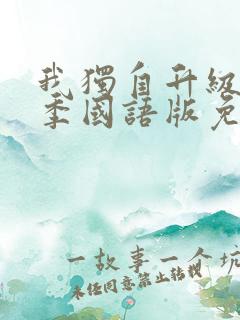 我獨自升級
季國語版免
一故事一个坑
未经同意禁止转载